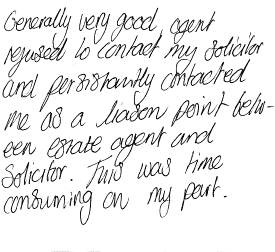 Generally very good agent
refused to contact my solicitor
and persistantly contacted
me as a liason point betw-
een estate agent and
Solicitor. This was time
consuming on my part.